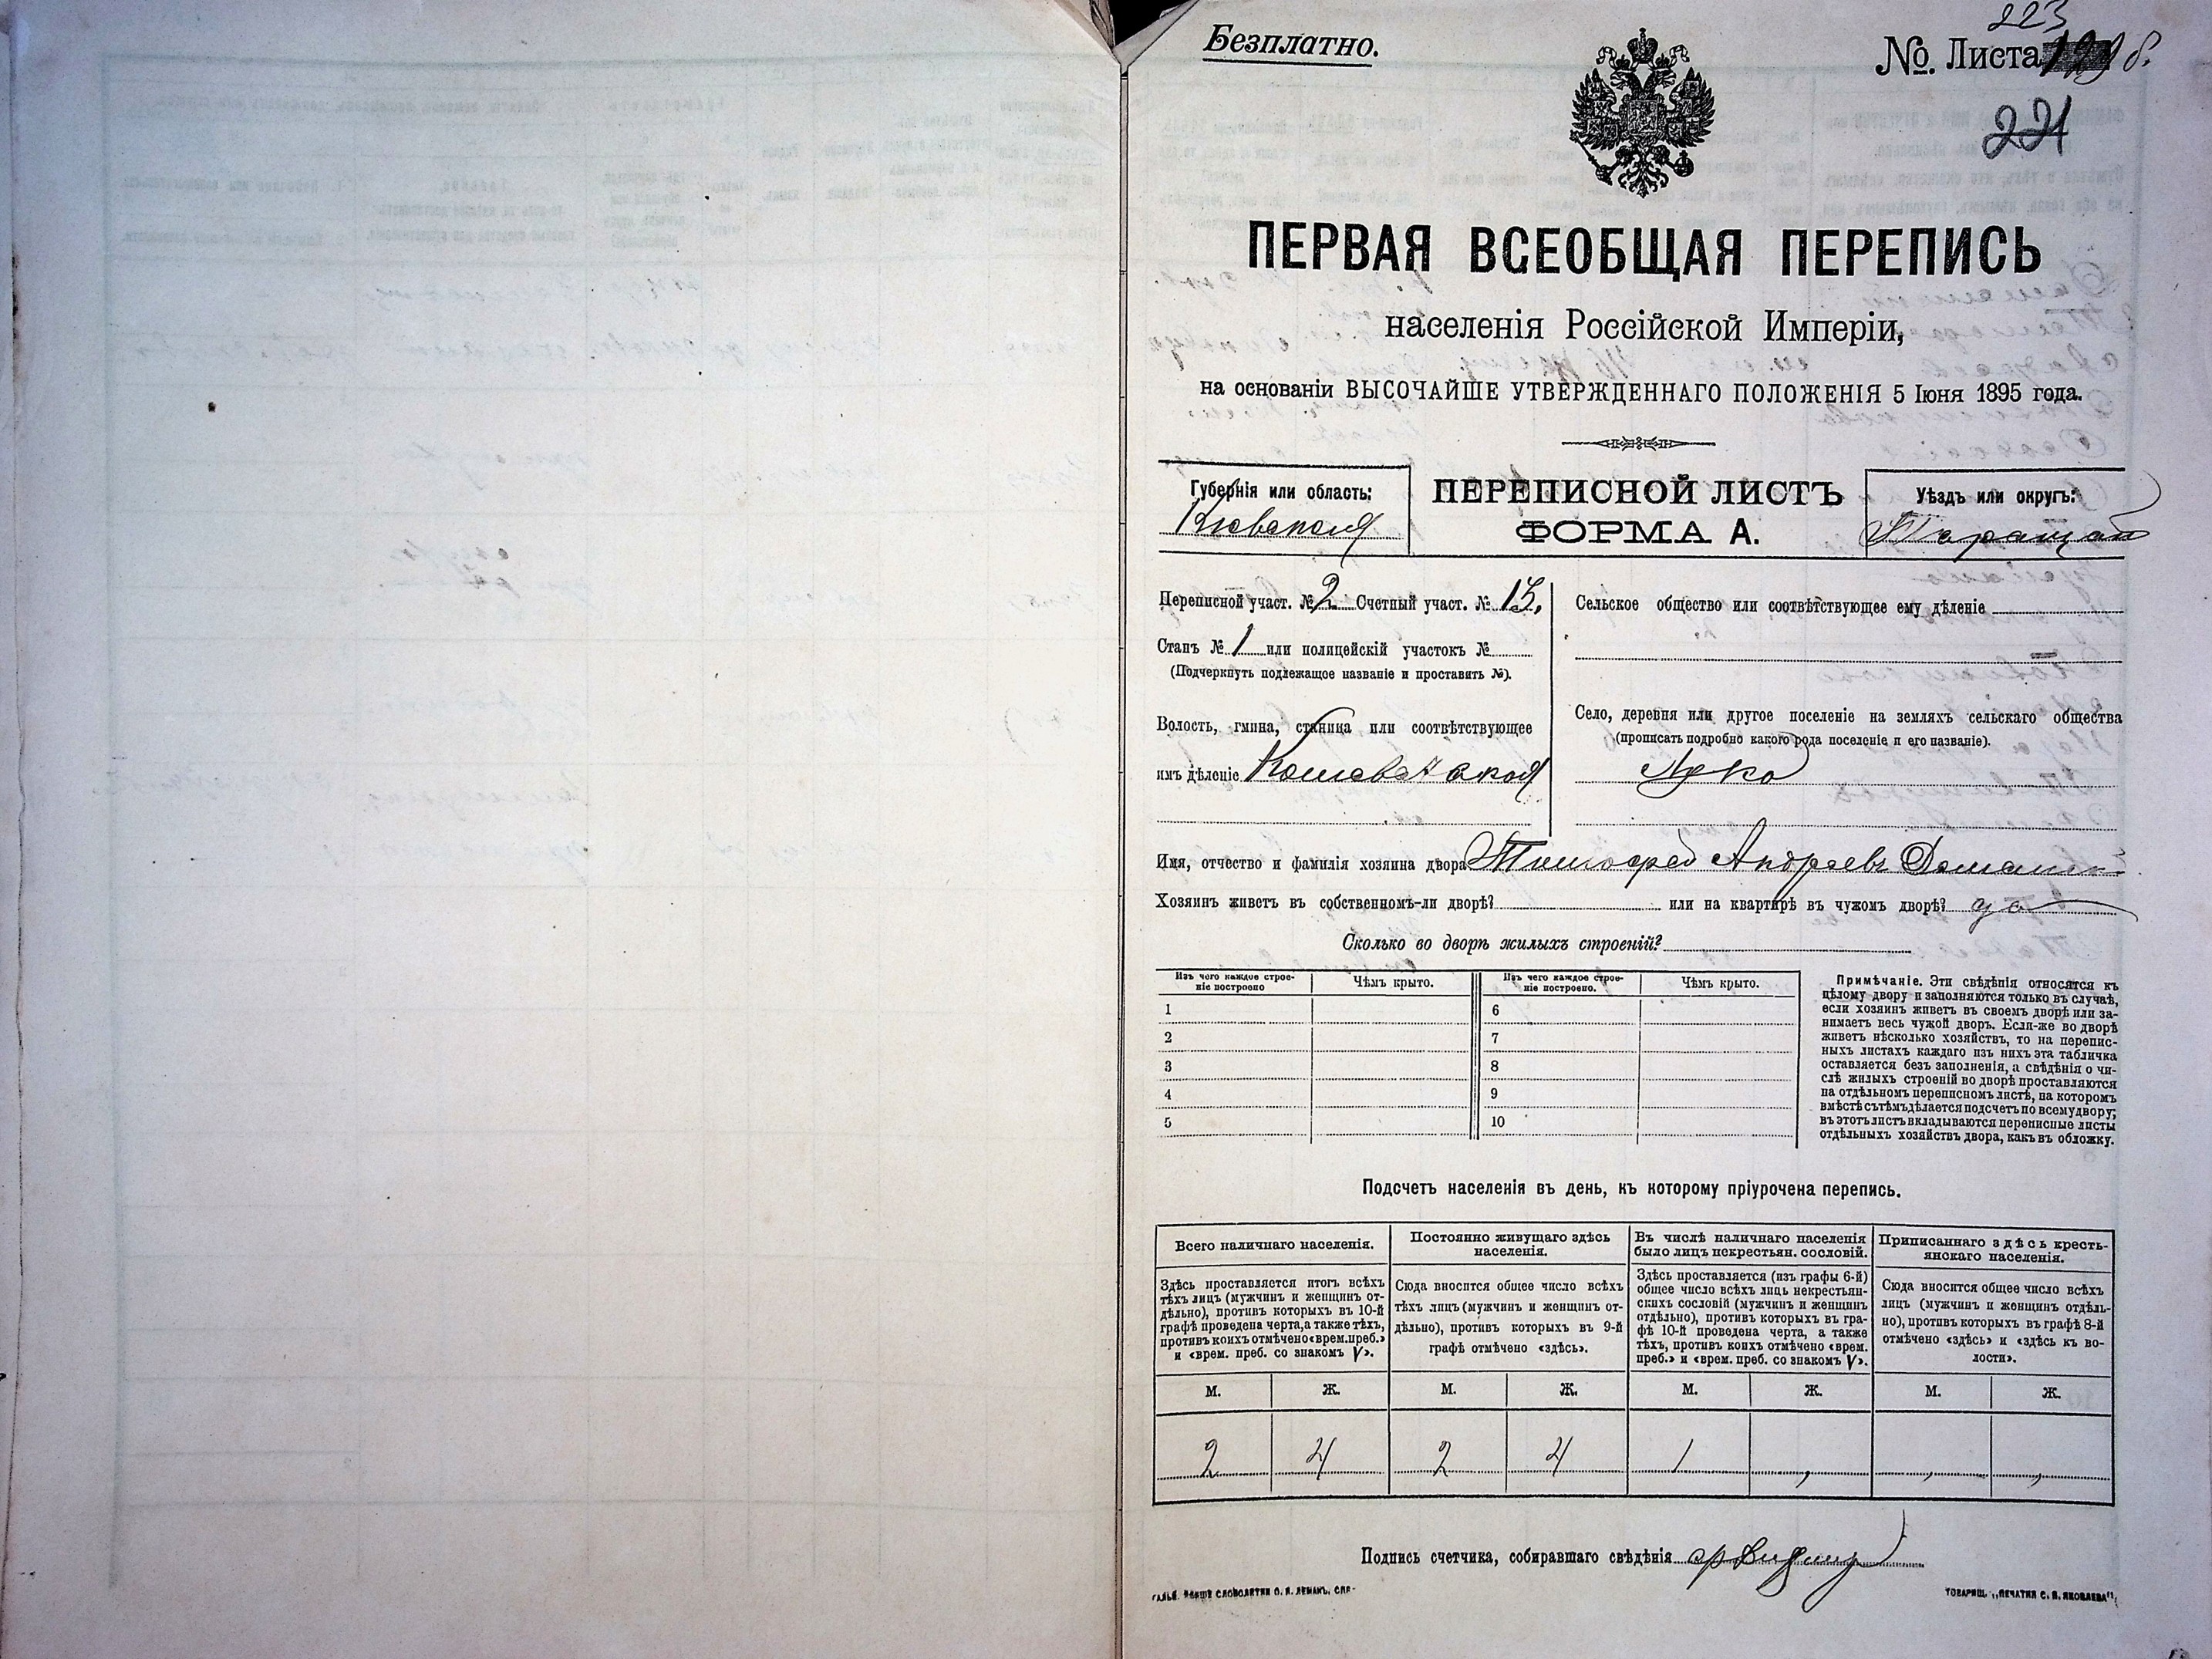 Безплатно.
223
№. Листа
221
ПЕРВАЯ ВСЕОБЩАЯ ПЕРЕПИСЬ
населенія Россійской Имперіи,
на основаніи ВЫСОЧАЙШЕ УТВЕРЖДЕННАГО ПОЛОЖЕНІЯ 5 Іюня 1895 года.
Губернія или область:
Кіевская
ПЕРЕПИСНОЙ ЛИСТЪ
ФОРМА А.
Уѣздъ или округъ:
Таращан
Переписной участ. № 2 Счетный участ. № 15,
Станъ № 1 или полицейскій участокъ №
(Подчеркнуть подлежащое названіе и проставить №).
Волость, гмина, станица или соотвѣтствующее
имъ дѣленіе Кошеватская
Сельское общество или соотвѣтствующее ему дѣленіе
Село, деревня или другое поселеніе на земляхъ сельскаго общества
(прописать подробно какого рода поселеніе и его названіе).
Лука
Имя, отчество и фамилія хозяина двора Тимофей Андреевъ
Хозяинъ живетъ въ собственномъ-ли дворѣ? или на квартирѣ въ чужомъ дворѣ? да
Сколько во дворѣ жилыхъ строеній?
Изъ чего каждое строе-
ніе построено
Чѣмъ крыто.
Изъ чего каждое строе-
ніе построено.
Чѣмъ крыто.
1 6
2 7
3 8
4 9
5 10
Примѣчаніе. Эти свѣдѣнія относятся къ
цѣлому двору и заполняются только въ случаѣ,
если хозяинъ живетъ въ своемъ дворѣ или за-
нимаетъ весь чужой дворъ. Если-же во дворѣ
живетъ нѣсколько хозяйствъ, то на перепис-
ныхъ листахъ каждаго изъ нихъ эта табличка
оставляется безъ заполненія, а свѣдѣнія о чи-
слѣ жилыхъ строеній во дворѣ проставляются
на отдѣльномъ переписномъ листѣ, на которомъ
вмѣстѣ съ тѣмъ дѣлается подсчетъ по всему двору;
въ этотъ листъ вкладываются переписные листы
отдѣльныхъ хозяйствъ двора, какъ въ обложку.
Подсчетъ населенія въ день, къ которому пріурочена перепись.
Всего наличнаго населенія.
Здѣсь проставляется итогъ всѣхъ
тѣхъ лицъ (мужчинъ и женщинъ от-
дѣльно), противъ которыхъ въ 10-й
графѣ проведена черта, а также тѣхъ,
противъ коихъ отмѣчено «врем. преб.»
и «врем. преб. со знакомъ V».
Постоянно живущаго здѣсь
населенія.
Сюда вносится общее число всѣхъ
тѣхъ лицъ (мужчинъ и женщинъ от-
дѣльно), противъ которыхъ въ 9-й
графѣ отмѣчено «здѣсь».
Въ числѣ наличнаго населенія
было лицъ некрестьян. сословій.
Здѣсь проставляется (изъ графы 6-й)
общее число всѣхъ лицъ некрестьян-
скихъ сословій (мужчинъ и женщинъ
отдѣльно), противъ которыхъ въ гра-
фѣ 10-й проведена черта, а также
тѣхъ, противъ коихъ отмѣчено «врем.
преб.» и «врем. преб. со знакомъ V».
Приписаннаго здѣсь кресть-
янскаго населенія.
Сюда вносится общее число всѣхъ
лицъ (мужчинъ и женщинъ отдѣль-
но), противъ которыхъ въ графѣ 8-й
отмѣчено «здѣсь» и «здѣсь къ во-
лости».
М. Ж. М. Ж. М. Ж. М. Ж.
2 4 2 4 1
Подпись счетчика, собиравшаго свѣдѣнія
СЛОВОЛИТНИ О. И. ЛЕМАНЪ, СПБ.
ТОВАРИЩ. „ПЕЧАТНЯ С. П. ЯКОВЛЕВА“